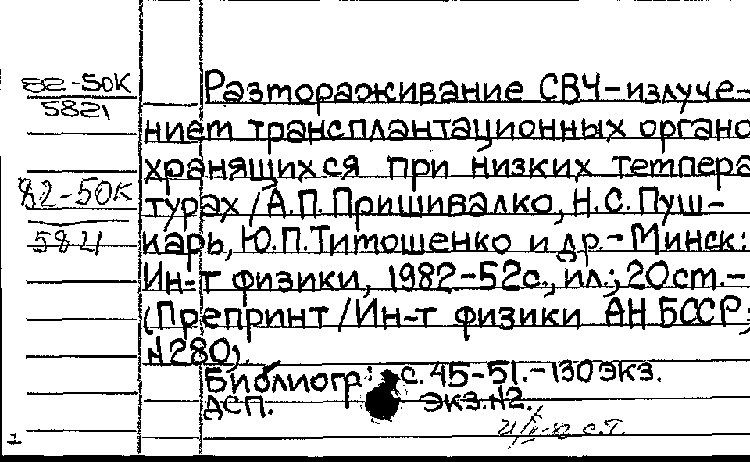 82-50К
5821
Разтораживание СВЧ-излуче-
нием трансплантационных органо
хранящихся при низких темпера
82-50К
турах / А.П. Пришивалко, Н.С. Пуш-
5821
карь, Ю.П. Тимошенко и др.- Минск:
Ин-т физики, 1982-52с., ил.; 20см.-
(Препринт / Ин-т физики АН БССР;
№280).
Библиогр: с. 45-51.-130 экз.
ДСП. экз.№2.
1